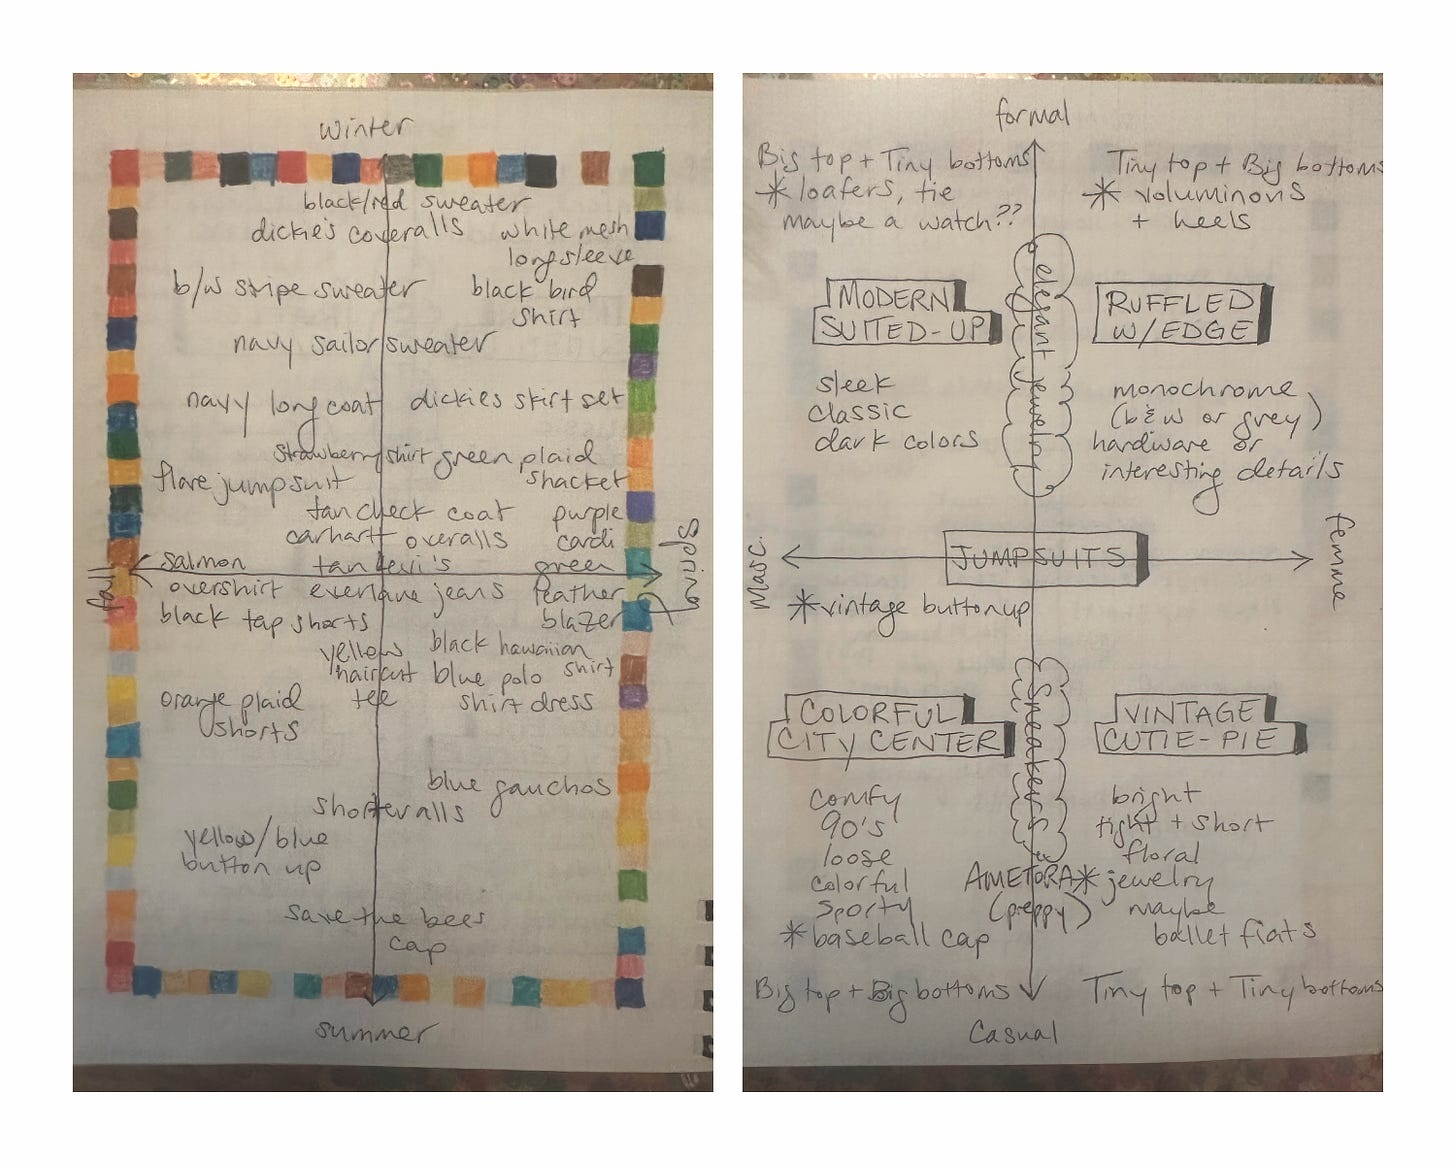 winter
black/red sweater
dickie's coveralls
white mesh
longsleeve
b/w stripe sweater
black bird
shirt
navy sailor sweater
navy long coat
dickies skirt set
strawberry shirt
green plaid
shacket
flare jumpsuit
tan check coat
purple
cardi
carhartt overalls
fall
salmon
overshirt
tan levi's
everlane jeans
green
feather
blazer
spring
black tap shorts
yellow
haircut
tee
black hawaiian
shirt
blue polo
shirt dress
orange plaid
shorts
blue gauchos
shorteralls
yellow/blue
button up
save the bees
cap
summer
formal
Big top + Tiny bottoms
* loafers, tie
maybe a watch??
Tiny top + Big bottoms
* voluminous
+ heels
elegant jewelry
MODERN
SUITED-UP
RUFFLED
W/EDGE
sleek
classic
dark colors
monochrome
(b&w or grey)
hardware or
interesting details
Masc.
JUMPSUITS
femme
* vintage buttonup
sneakers
COLORFUL
CITY CENTER
VINTAGE
CUTIE-PIE
comfy
90's
loose
colorful
sporty
* baseball cap
AMETORA
(preppy)
bright
tight + short
floral
* jewelry
maybe
ballet flats
Big top + Big bottoms
Tiny top + Tiny bottoms
Casual